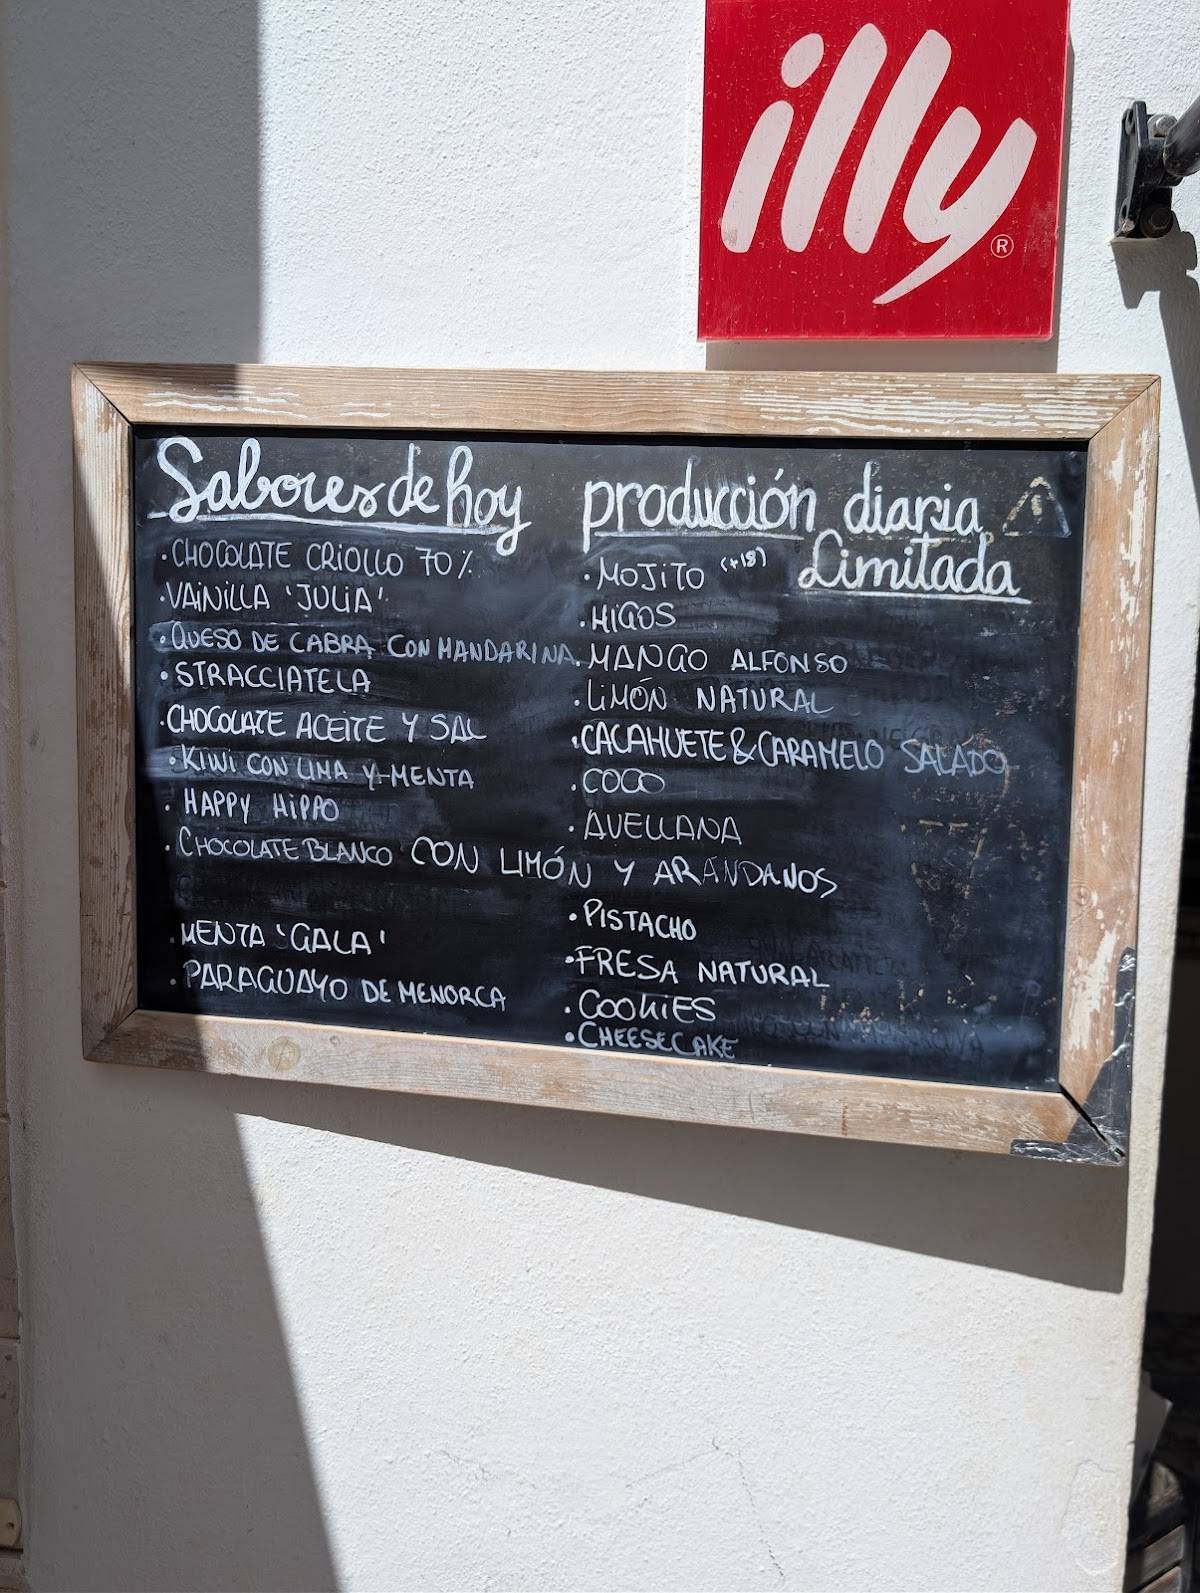 illy®
Sabores de hoy
• CHOCOLATE CRIOLLO 70%
• VAINILLA 'JULIA'
• QUESO DE CABRA CON MANDARINA
• STRACCIATELA
• CHOCOLATE ACEITE Y SAL
• KIWI CON LIMA Y MENTA
• HAPPY HIPPO
• CHOCOLATE BLANCO CON LIMÓN Y ARANDANOS
• MENTA 'GALA'
• PARAGUAYO DE MENORCA
producción diaria
Limitada
• MOJITO (+18)
• HIGOS
• MANGO ALFONSO
• LIMÓN NATURAL
• CACAHUETE & CARAMELO SALADO
• COCO
• AVELLANA
• PISTACHO
• FRESA NATURAL
• COOKIES
• CHEESECAKE